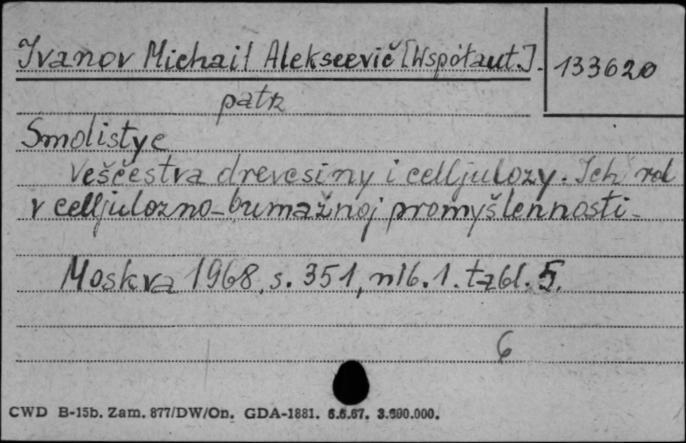 Ivanov Michail Alekseevič [Współaut.].
133620
patrz
Smolistye
veščestva drevesiny i celljulozy. Ich rol
v celljulozno-bumažnoj promyšlennosti.
Moskva 1968, s. 351, nlb. 1. tabl. 5.
6
CWD B-15b. Zam. 877/DW/On. GDA-1881. 6.6.67. 3.000.000.